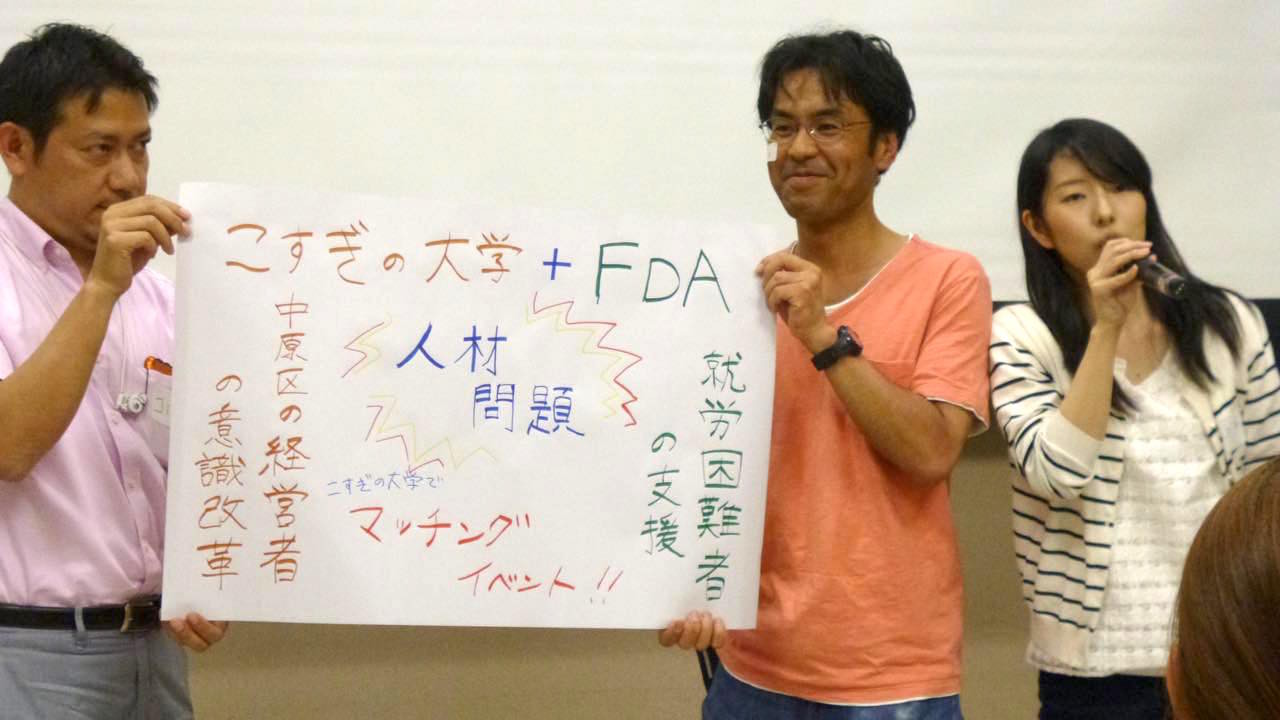 こすぎの大学 + FDA
中原区の経営者
の意識改革
人材
問題
就労困難者
の支援
こすぎの大学で
マッチング
イベント!!